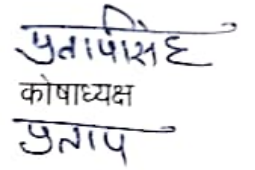 प्रतापसिंह
कोषाध्यक्ष
प्रताप